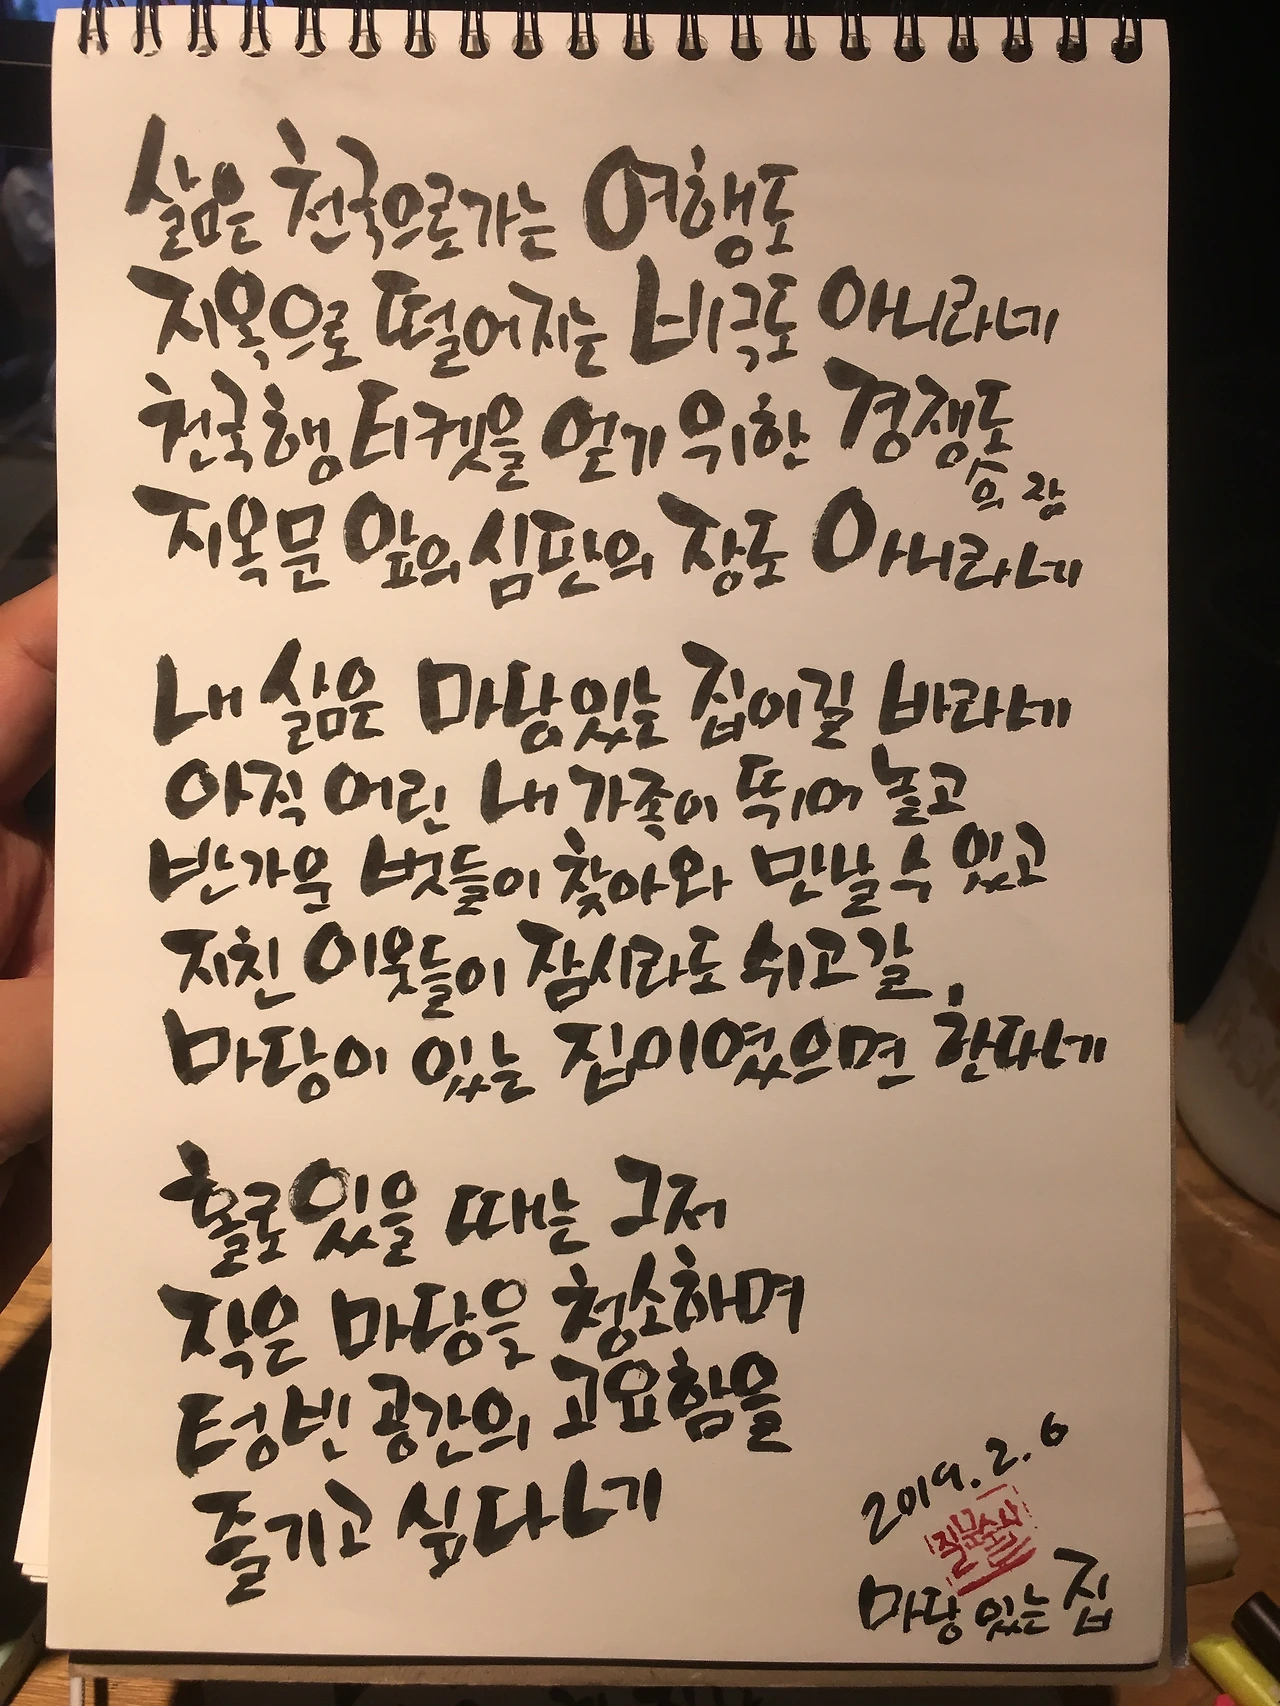 삶은 천국으로 가는 여행도
지옥으로 떨어지는 비극도 아니라네
천국행 티켓을 얻기 위한 경쟁도
승의 장
지옥문 앞의 심판의 장도 아니라네
내 삶은 마당있는 집이길 바라네
아직 어린 내 가족이 뛰어 놀고
반가운 벗들이 찾아와 만날 수 있고
지친 이웃들이 잠시라도 쉬고 갈
마당이 있는 집이였으면 한다네
홀로 있을 때는 그저
작은 마당을 청소하며
텅빈 공간의 고요함을
즐기고 싶다네
2019.2.6
마당 있는 집